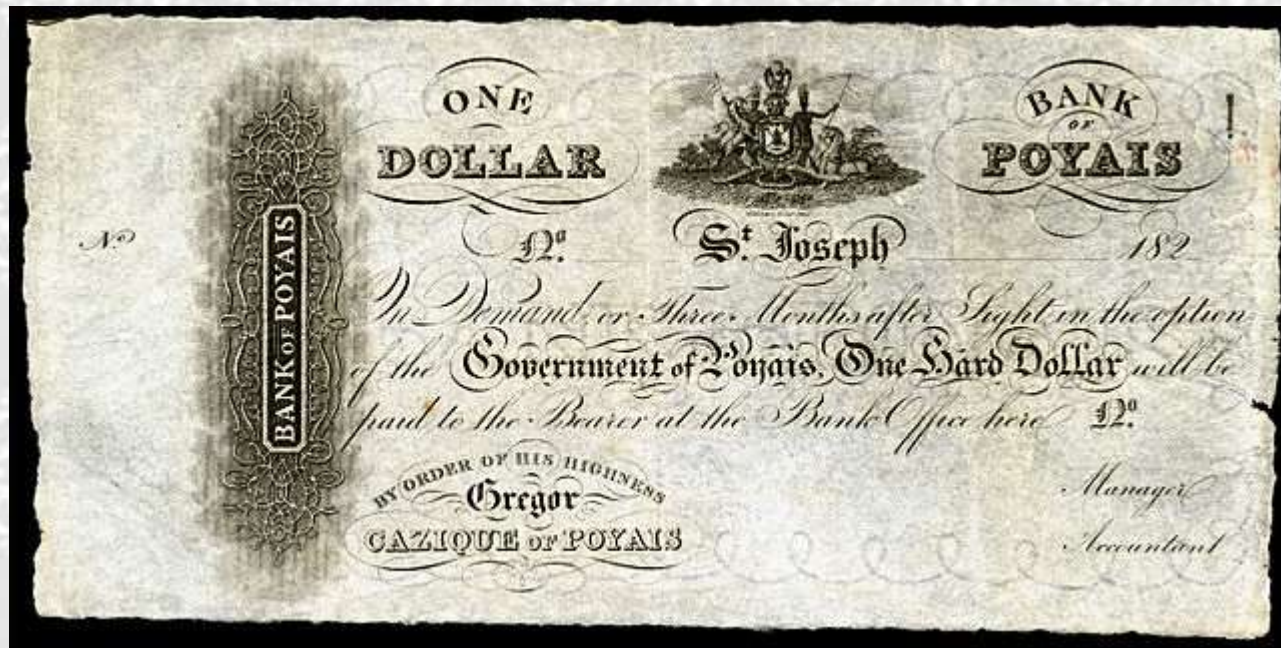 ONE
DOLLAR
BANK
OF
POYAIS
No
No.
St. Joseph
182
On Demand, or Three Months after Sight in the option
of the Government of Poyais, One Hard Dollar will be
paid to the Bearer at the Bank Office here No.
BANK OF POYAIS
BY ORDER OF HIS HIGHNESS
Gregor
CAZIQUE OF POYAIS
Manager
Accountant